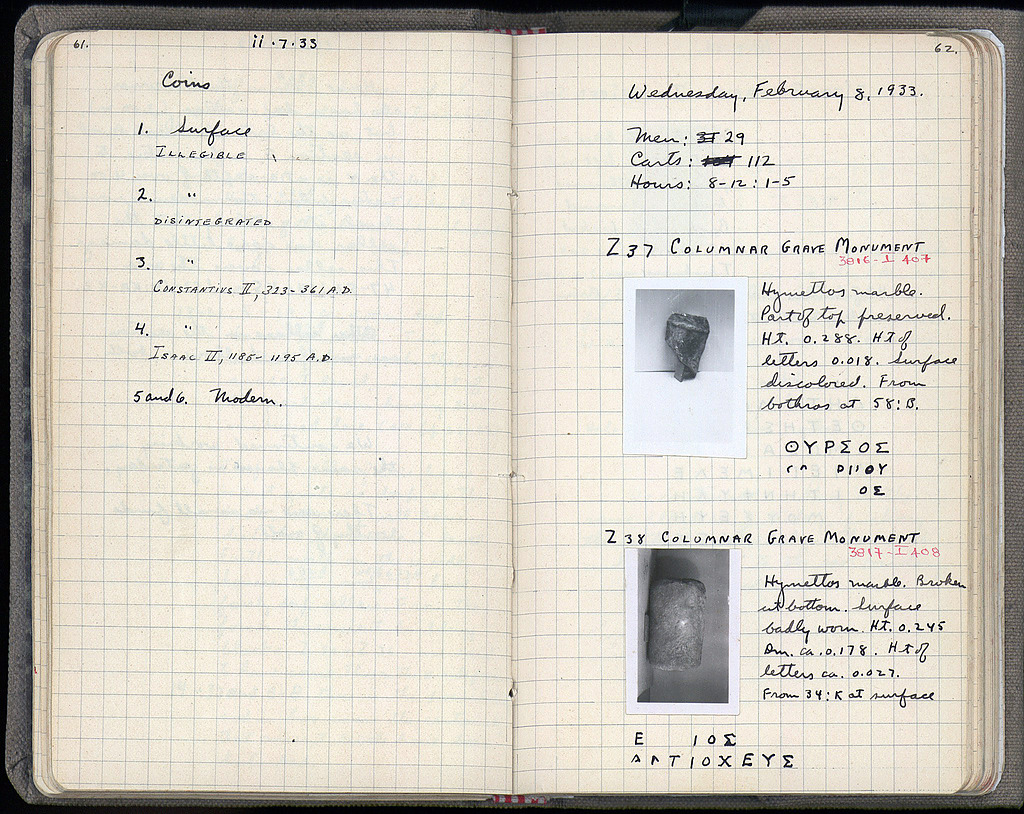 61.
ii.7.33
Coins
1. Surface
ILLEGIBLE
2. "
DISINTEGRATED
3. "
CONSTANTIUS II, 323-361 A.D.
4. "
ISAAC II, 1185-1195 A.D.
5 and 6. Modern.
62.
Wednesday, February 8, 1933.
Men: 31 29
Carts: 112
Hours: 8-12: 1-5
Z 37 COLUMNAR GRAVE MONUMENT
3816-I 407
Hymettos marble.
Part of top preserved.
Ht. 0.288. Ht of
letters 0.018. Surface
discolored. From
bothros at 58:B.
ΘΥΡΣΟΣ
ΟΥ
ΟΣ
Z 38 COLUMNAR GRAVE MONUMENT
3817-I 408
Hymettos marble. Broken
at bottom. Surface
badly worn. Ht. 0.245
Dm. ca. 0.178. Ht of
letters ca. 0.027.
From 34:K at surface
Ε ΙΟΣ
ΑΝΤΙΟΧΕΥΣ